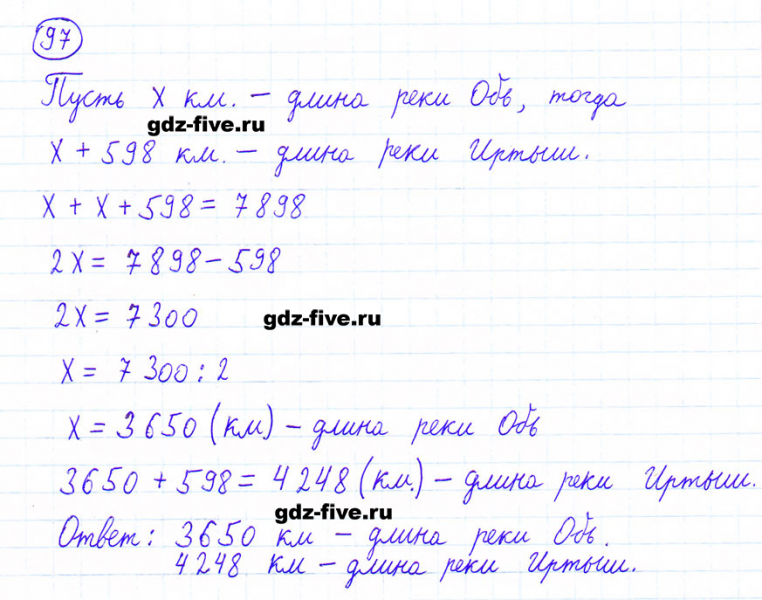 97
Пусть x км. – длина реки Обь, тогда
gdz-five.ru
x + 598 км. – длина реки Иртыш.
x + x + 598 = 7898
2x = 7898 – 598
2x = 7300
gdz-five.ru
x = 7300 : 2
x = 3650 (км) – длина реки Обь
3650 + 598 = 4248 (км.) – длина реки Иртыш.
gdz-five.ru
Ответ: 3650 км – длина реки Обь.
4248 км – длина реки Иртыш.